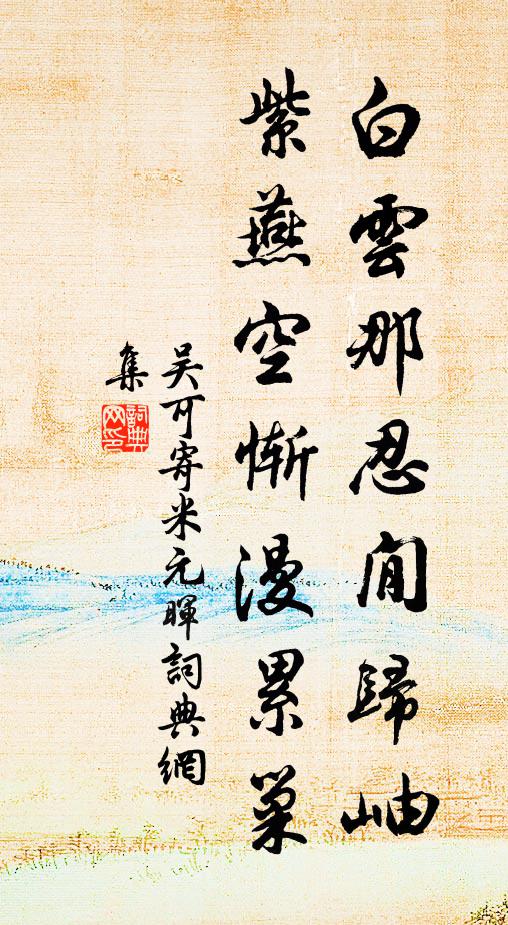 白雲那忍閒歸岫
紫燕空慚漫累巢
吴可寄米元暉詞典網
集
詞典
网印